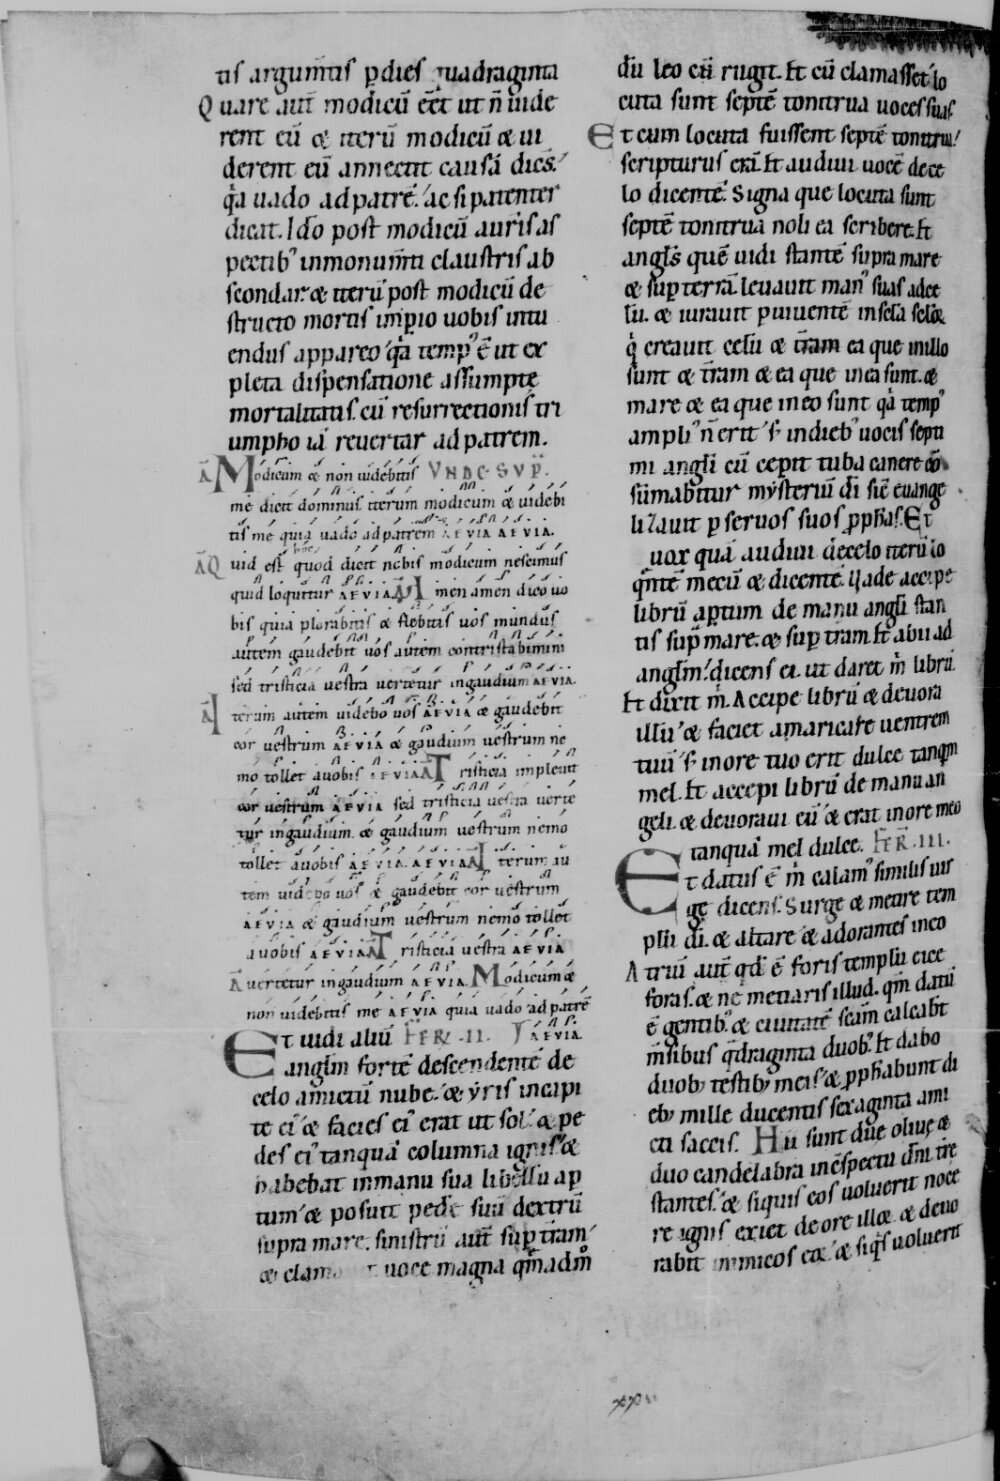 tis argum̄tis p̱dies quadraginta
Quare aut̄ modicū eēt ut n̄ uide
rent eū & iterū modicū & ui
derent eū annectit causā dics̄.
q̇a uado adpatrē. ac si patenter
dicat. Ido post modicū aurisas
pectib; inmonum̄ti claustris ab
scondar. & iterū post modicū de
structo mortis imp̱io uobis intu
endus appareo q̇a temp; ē ut ex
pleta dispensatione assumpte
mortalitatis. cū resurrectionis tri
umpho iā reuertar adpatrem.
Ā Modicum & non uidebitis VNDE SVP̄.
me dicit dominus. iterum modicum & uidebi
tis me quia uado adpatrem AEVIA AEVIA.
Ā Quid est hoc quod dicit nobis modicum nescimus
quid loquitur AEVIA. Ā Amen amen dico uo
bis quia plorabitis & flebitis uos mundus
autem gaudebit uos autem contristabimini
sed tristicia uestra uertetur ingaudium AEVIA.
Ā Iterum autem uidebo uos AEVIA & gaudebit
cor uestrum AEVIA & gaudium uestrum ne
mo tollet auobis AEVIA Ā Tristicia impleuit
cor uestrum AEVIA sed tristicia uestra uerte
tur ingaudium. & gaudium uestrum nemo
tollet auobis AEVIA. AEVIA Ā Iterum au
tem uidebo uos & gaudebit cor uestrum
AEVIA & gaudium uestrum nemo tollet
auobis AEVIA Ā Tristicia uestra AEVIA
Ā uertetur ingaudium AEVIA. Modicum &
non uidebitis me AEVIA quia uado adpatrē
Et uidi aliū FER̄. II. AEVIA.
anglm̄ fortē descendentē de
celo amictū nube. & yris incapi
te ei; & facies ei; erat ut sol & pe
des ei; tanquā columna ignis &
habebat inmanu sua libellū ap̱
tum & posuit pedē suū dextrū
supra mare. sinistrū aut̄ sup̱ t̄ram
& clama t uoce magna qm̄adm̊
dū leo cū rugit. Et cū clamasset lo
cuta sunt septē tonitrua uoces suas.
Et cum locuta fuissent septē tonitrua
scripturus erā. Et audiui uocē dece
lo dicentē. Signa que locuta sunt
septē tonitrua noli ea scribere. Et
angls̄ quē uidi stantē supra mare
& sup̱ terrā. leuauit man; suas adce
lū. & iurauit p̱ uiuentē insclā sclo&
q̇ creauit celū & t̄ram ea que inillo
sunt & t̄ram & ea que inea sunt. &
mare & ea que ineo sunt q̇a temp;
ampli; n̄ erit s; indieb; uocis septi
mi angli cū cepit tuba canere con
sūmabitur mysteriū dī sic̄ euange
lizauit p̱ seruos suos p̱phas̄. Et
uox quā audiui decelo iterū lo
qn̄tē mecū & dicentē. Uade accipe
librū ap̱tum de manu angli stan
tis sup̱ mare. & sup̱ t̄ram. Et abii ad
anglm̄. dicens ei. ut daret m̄ librū.
Et dixit m̄. Accipe librū & deuora
illū & faciet amaricare uentrem
tuū s; inore tuo erit dulce tanqm̄
mel. Et accepi librū de manu an
geli. & deuoraui eū & erat inore meo
tanquā mel dulce. FER̄. III.
Et datus ē m̄ calam; similis uir
gę dicens. Surge & metire tem
plū dī. & altare & adorantes ineo
Atriū aut̄ qd̄ ē foris templū eice
foras. & ne metiaris illud. qm̄ datū
ē gentib; & ciuitatē scām calcabt̄
m̄sibus q̄draginta duob;. Et dabo
duob; testib; meis & p̱phabunt di
eb; mille ducentis sexaginta ami
cti saccis. Hii sunt duę oliuę &
duo candelabra inc̄spectu dn̄i tr̄e
stantes. & siquis eos uoluerit noce
re ignis exiet de ore illo& & deuo
rabit inimicos eo& & siq̇s uoluerit